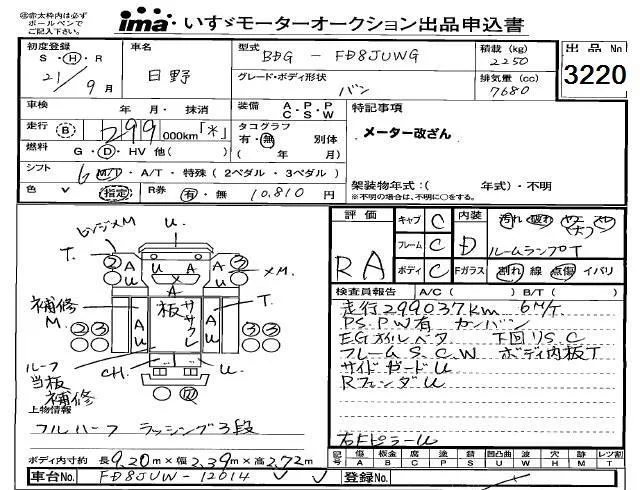 ㊟赤太枠内は必ず
ボールペンで
ご記入下さい。
ima いすゞモーターオークション出品申込書
初度登録 S・H・R 21年 9月
車名 日野
型式 BDG - FD8JUWG
グレード・ボディ形状 バン
積載 (kg) 2250
排気量 (cc) 7680
出品No 3220
車検 年・月・抹消
装備 A・P・P C・S・W
特記事項
メーター改ざん
走行 B 299 000km「*」
タコグラフ 有・無 別体 ( 年 月)
燃料 G・D・HV 他( )
シフト 6 M/T・A/T・特殊 (2ペダル・3ペダル)
架装物年式:( 年式)・不明
※不明の場合は、不明に○をする。
色 指定 R券 有・無 10,810 円
評価 RA
キャブ C
フレーム C
ボディ C
内装 D 汚れ 破れ
ルームランプT
Fガラス 割れ 線 点傷 イパリ
検査員報告 A/C( ) B/T( )
走行299037km 6M/T
P.S. P.W有 カンバン
EGオイルベタ 下回りS.C
フレームS.C.W ボディ内板T
サイドガードU
RフェンダU
右Fピラー U
ヒンジメM U.
T. 2 U A U 3 ×M.
A
補修 M. A U 板 ササクレ A U T.
2 3 3 3
ルーフ
当板
補修
CH. U.
上物情報
フルハーフ ラッシング3段
ボディ内寸約 長9.20m×幅2.39m×高2.72m
記号 傷 板金 腐 塗 錆 凹凸曲 波 穴 跡 レツ割
A B C P S U W H M T
車台No. FD8JUW-12014
登録No.